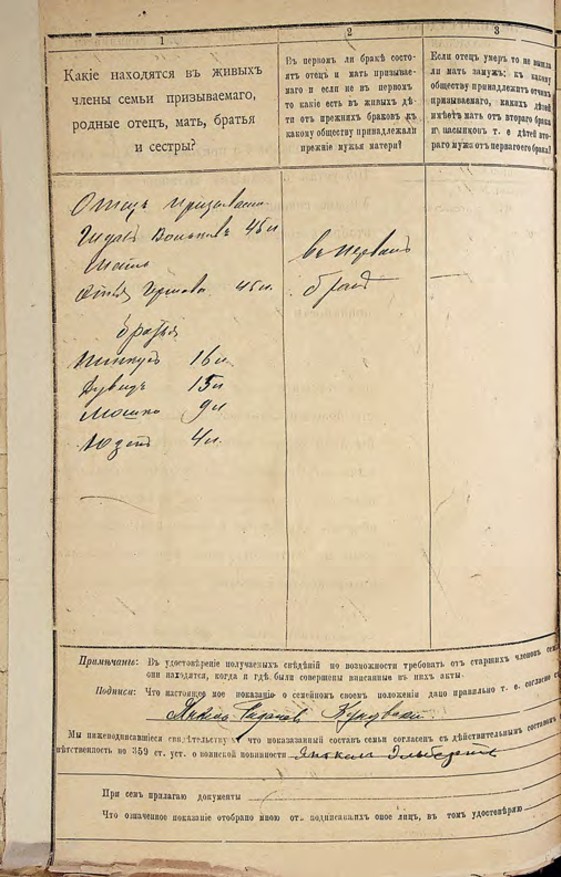 1
Какіе находятся въ живыхъ
члены семьи призываемаго,
родные отецъ, мать, братья
и сестры?
2
Въ первомъ ли бракѣ состо-
ятъ отецъ и мать призывае-
маго и если не въ первомъ
то какіе есть въ живыхъ дѣ-
ти отъ прежнихъ браковъ къ
какому обществу принадлежали
прежніе мужья матери?
3
Если отецъ умеръ то не вышла
ли мать замужъ; къ какому
обществу принадлежитъ отчимъ
призываемаго, какихъ дѣтей
имѣетъ мать отъ втораго брака
и пасынковъ т. е дѣтей вто-
раго мужа отъ перваго его брака?
Отецъ
45 л
Мать
45 л.
въ первомъ
бракѣ
братья
16 л
Дувидъ 15 л
Мошко 9 л
4 л.
Примѣчаніе: Въ удостовѣреніе получаемыхъ свѣдѣній по возможности требовать отъ старшихъ членовъ
они находятся, когда и гдѣ были совершены вписанные въ нихъ акты.
Подписи: Что настоящее мое показаніе о семейномъ своемъ положеніи дано правильно т. е. согласно
Мы нижеподписавшіеся что показазанный составъ семьи согласенъ съ дѣйствительнымъ составомъ
по 359 ст. уст. о воинской повинности
При семъ прилагаю документы
Что означенное показаніе отобрано мною отъ подписавшихъ оное лицъ, въ томъ удостовѣряю